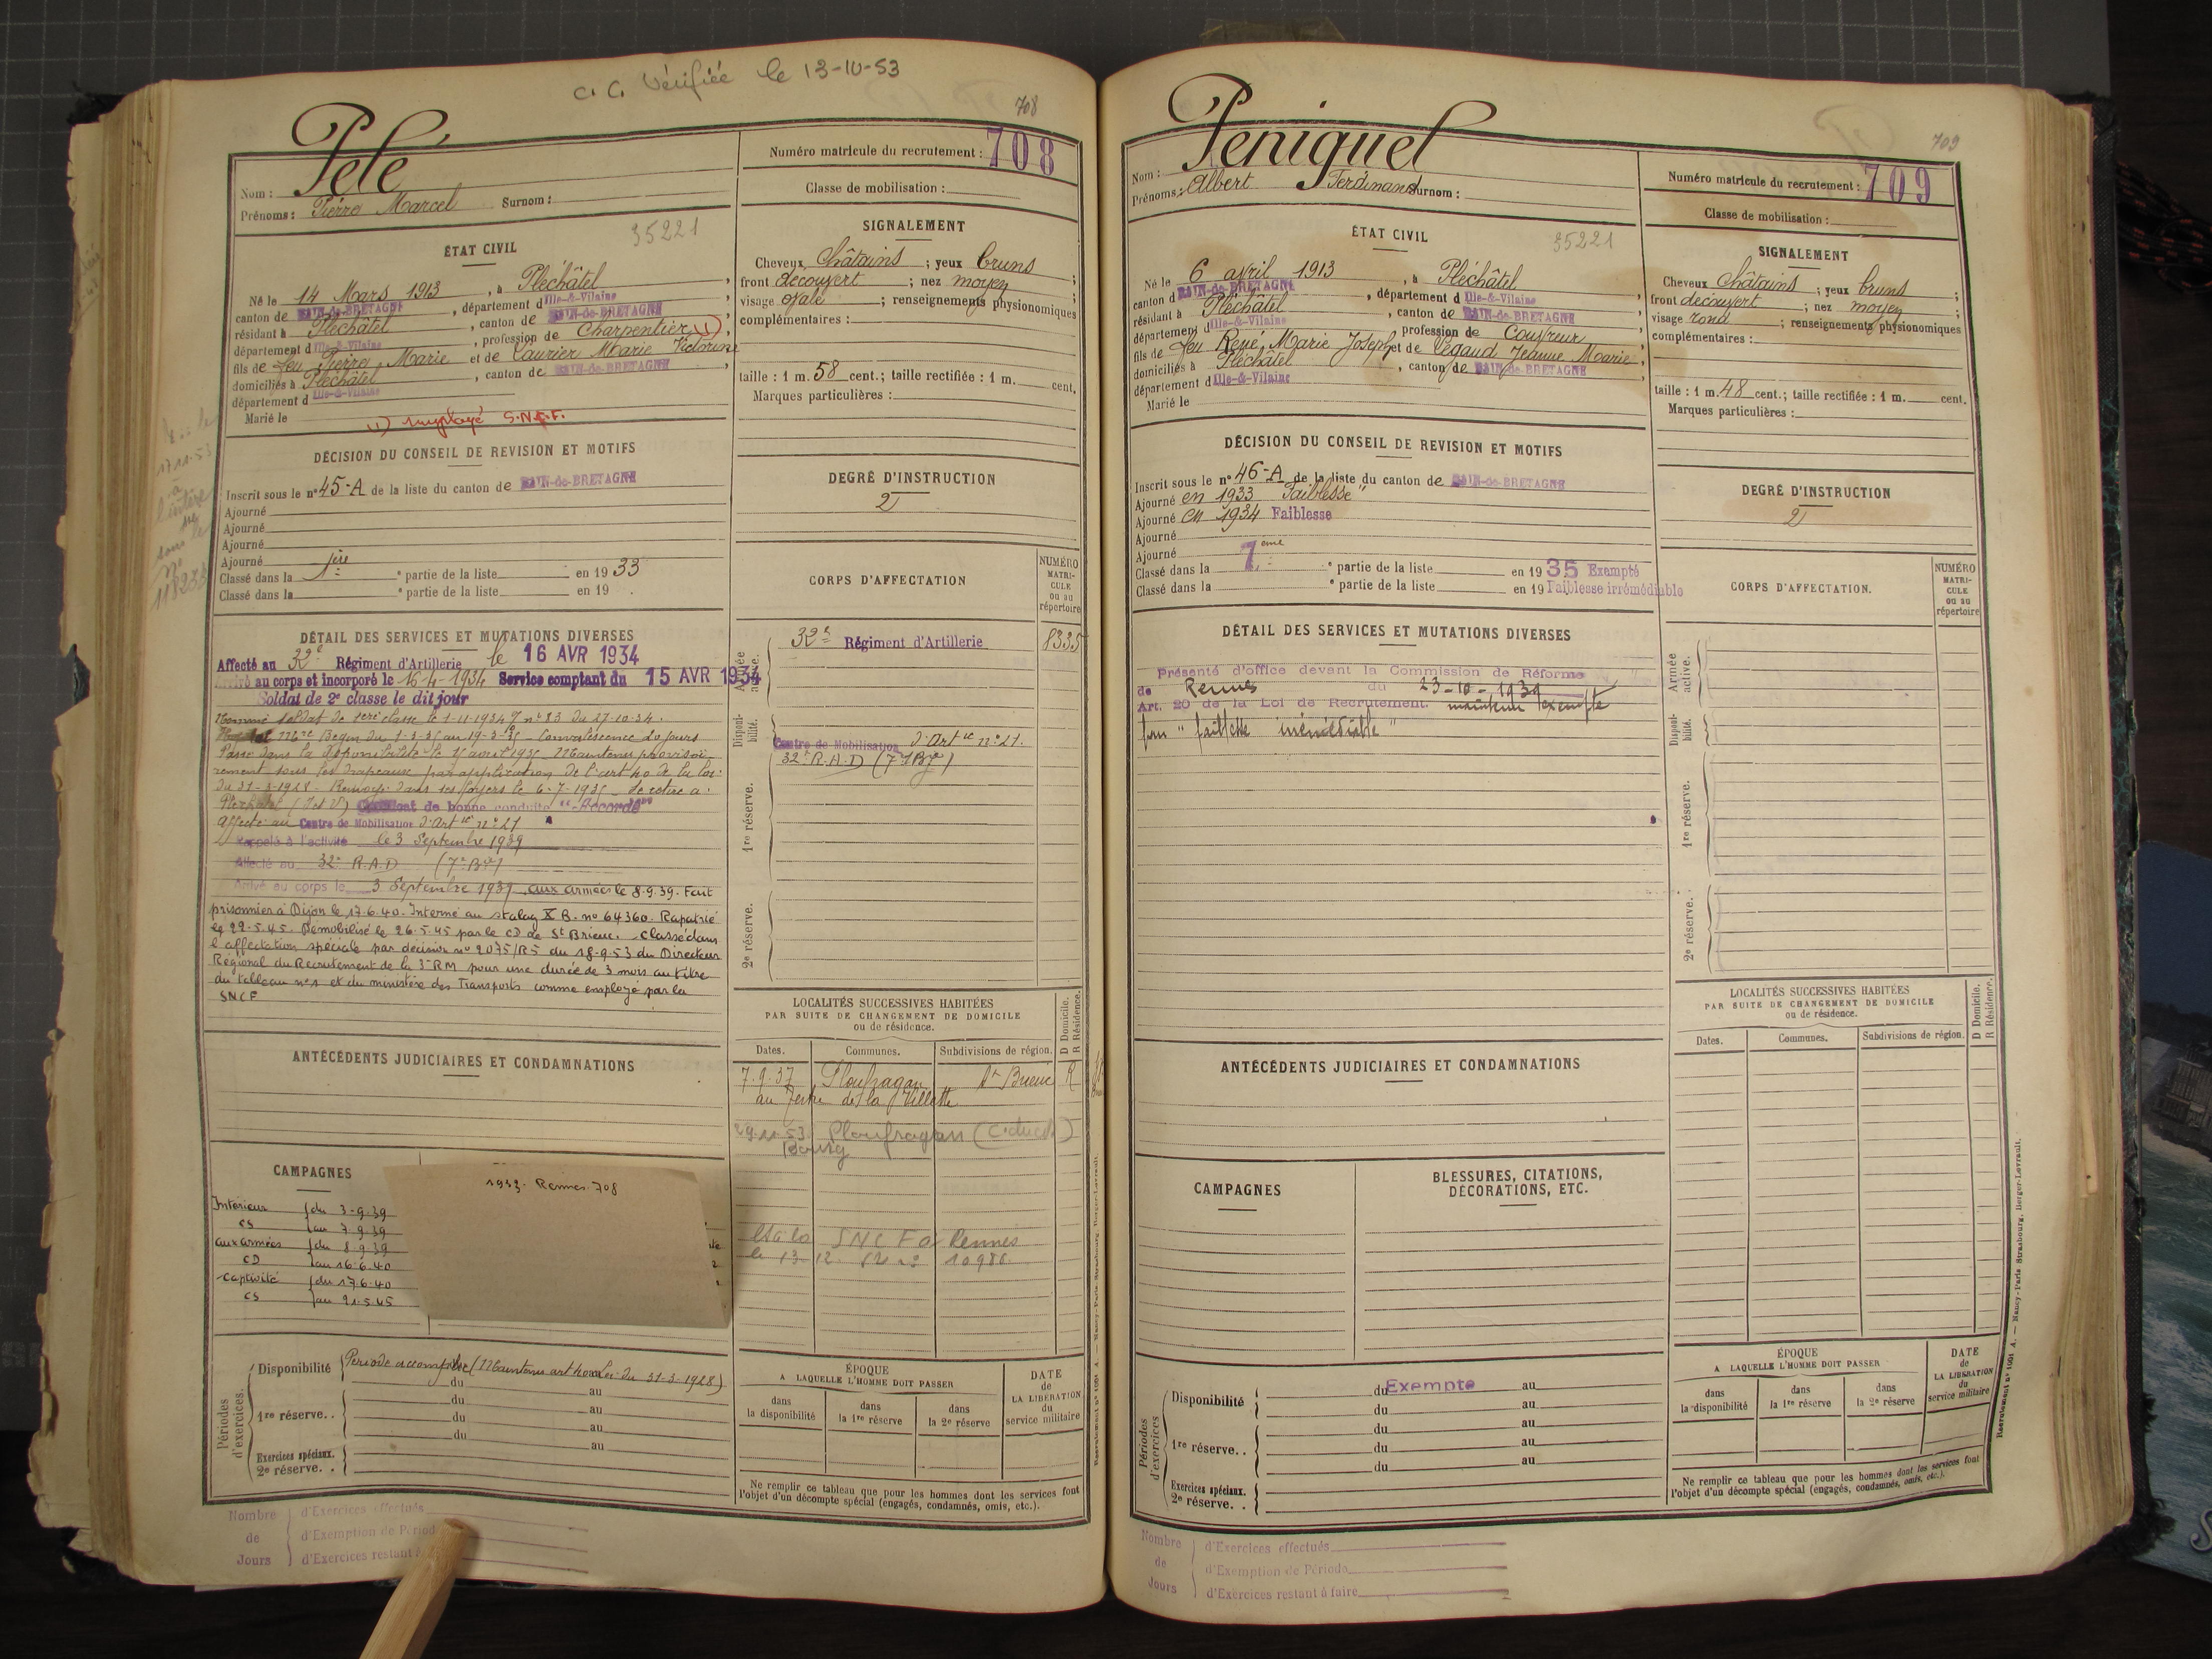 C. C. Vérifiée le 13-10-53
708
Pelé
Nom :
Prénoms : Pierre Marcel Surnom :
Numéro matricule du recrutement : 708
Classe de mobilisation :
ÉTAT CIVIL
35221
Né le 14 Mars 1913, à Pléchâtel,
canton de BAIN-de-BRETAGNE, département d Ille-&-Vilaine
résidant à Pléchâtel, canton de BAIN-de-BRETAGNE
département d Ille-&-Vilaine, profession de Charpentier (1),
fils de feu Pierre, Marie et de Laurier Marie Victorine
domiciliés à Pléchâtel, canton de BAIN-de-BRETAGNE,
département d Ille-&-Vilaine
Marié le
(1) employé S.N.C.F.
SIGNALEMENT
Cheveux Châtains ; yeux bruns ;
front découvert ; nez moyen ;
visage ovale ; renseignements physionomiques
complémentaires :
taille : 1 m. 58 cent.; taille rectifiée : 1 m. cent.
Marques particulières :
DÉCISION DU CONSEIL DE REVISION ET MOTIFS
Inscrit sous le n° 45-A de la liste du canton de BAIN-de-BRETAGNE
Ajourné
Ajourné
Ajourné
Ajourné
Classé dans la 1ère e partie de la liste en 19 33
Classé dans la e partie de la liste en 19 .
DEGRÉ D'INSTRUCTION
2
17 11-53
à
sous le
n°
CORPS D'AFFECTATION
NUMÉRO
MATRI-
CULE
ou au
répertoire
Armée active.
32e Régiment d'Artillerie 8335
Disponi-
bilité.
Centre de Mobilisation d'Art ie n° 21.
32e R.A.D (7e Bie)
1re réserve.
2e réserve.
DÉTAIL DES SERVICES ET MUTATIONS DIVERSES
Affecté au 32e Régiment d'Artillerie le 16 AVR 1934
Arrivé au corps et incorporé le 16-4-1934 Service comptant du 15 AVR 1934
Soldat de 2e classe le dit jour
Nommé soldat de 1ère classe le 1-11-1934 n° 83 du 27.10.34.
Mre Begin du 1-3-35 au 19-3-35 - Convalescence 20 jours
Passé dans la disponibilité le 15 avril 1935 - Maintenu provisoi-
rement sous les drapeaux par application de l'art 40 de la loi
du 31-3-1928 - Renvoyé dans ses foyers le 6-7-1935 - Se retire à
Pléchâtel (I et V) Certificat de bonne conduite "Accordé"
Affecté au Centre de Mobilisation d'Art ie n° 21
Rappelé à l'activité le 3 Septembre 1939
Affecté au 32e R.A.D (7e Bie)
Arrivé au corps le 3 Septembre 1939 aux armées le 8.9.39. Fait
prisonnier à Dijon le 17.6.40. Interné au stalag X B. n° 64360. Rapatrié
le 22-5-45. Démobilisé le 26.5.45 par le CD de St Brieuc. Classé dans
l'affectation spéciale par décision n° 2075/R5 du 18-9-53 du Directeur
Régional du Recrutement de la 3e RM pour une durée de 3 mois au titre
du tableau n°1 et du ministère des Transports comme employé par la
SNCF
ANTÉCÉDENTS JUDICIAIRES ET CONDAMNATIONS
LOCALITÉS SUCCESSIVES HABITÉES
PAR SUITE DE CHANGEMENT DE DOMICILE
ou de résidence.
D Domicile.
R Résidence.
Dates. Communes. Subdivisions de région.
7.9.37 Ploufragan St Brieuc R
au Tertre de la Villette
29.11.53 Ploufragan (C. du N.)
Bourg
SNCF à Rennes
le 13 12
CAMPAGNES
Intérieur du 3-9.39
CS au 7.9.39
aux armées du 8 9.39
CD au 16.6.40
captivité du 17.6.40
CS au 21.5.45
1933 - Rennes 708
Périodes
d'exercices.
Disponibilité Période accomplie (Maintenu art 40 loi du 31-3-1928)
du au
du au
1re réserve. . du au
du au
Exercices spéciaux.
2e réserve. .
ÉPOQUE
A LAQUELLE L'HOMME DOIT PASSER
dans
la disponibilité
dans
la 1re réserve
dans
la 2e réserve
DATE
de
LA LIBÉRATION
du
service militaire
Ne remplir ce tableau que pour les hommes dont les services font
l'objet d'un décompte spécial (engagés, condamnés, omis, etc.).
Nombre
de
Jours
d'Exercices effectués
d'Exemption de Périod
d'Exercices restant à
709
Peniguel
Nom :
Prénoms : Albert Ferdinand Surnom :
Numéro matricule du recrutement : 709
Classe de mobilisation :
ÉTAT CIVIL
35221
Né le 6 avril 1913, à Pléchâtel
canton d BAIN-de-BRETAGNE, département d Ille-&-Vilaine
résidant à Pléchâtel, canton de BAIN-de-BRETAGNE
département d Ille-&-Vilaine, profession de Couvreur
fils de feu René, Marie Joseph et de Légaud Jeanne Marie
domiciliés à Pléchâtel, canton de BAIN-de-BRETAGNE
département d Ille-&-Vilaine
Marié le
SIGNALEMENT
Cheveux Châtains ; yeux bruns ;
front découvert ; nez moyen ;
visage rond ; renseignements physionomiques
complémentaires :
taille : 1 m. 48 cent.; taille rectifiée : 1 m. cent.
Marques particulières :
DÉCISION DU CONSEIL DE REVISION ET MOTIFS
Inscrit sous le n° 46-A de la liste du canton de BAIN-de-BRETAGNE
Ajourné en 1933 "Faiblesse"
Ajourné en 1934 Faiblesse
Ajourné
Ajourné
Classé dans la 7ème e partie de la liste en 19 35 Exempté
Classé dans la e partie de la liste en 19 Faiblesse irrémédiable
DEGRÉ D'INSTRUCTION
2
DÉTAIL DES SERVICES ET MUTATIONS DIVERSES
Présenté d'office devant la Commission de Réforme
de Rennes du 23-10-1939
Art. 20 de la Loi de Recrutement. maintenu exempté
pour "faiblesse irrémédiable"
CORPS D'AFFECTATION.
NUMÉRO
MATRI-
CULE
ou au
répertoire
Armée active.
Disponi-
bilité.
1re réserve.
2e réserve.
ANTÉCÉDENTS JUDICIAIRES ET CONDAMNATIONS
LOCALITÉS SUCCESSIVES HABITÉES
PAR SUITE DE CHANGEMENT DE DOMICILE
ou de résidence.
D Domicile.
R Résidence.
Dates. Communes. Subdivisions de région.
CAMPAGNES
BLESSURES, CITATIONS,
DÉCORATIONS, ETC.
Périodes
d'exercices
Disponibilité du Exempté au
du au
du au
1re réserve. . du au
du au
Exercices spéciaux.
2e réserve. .
ÉPOQUE
A LAQUELLE L'HOMME DOIT PASSER
dans
la disponibilité
dans
la 1re réserve
dans
la 2e réserve
DATE
de
LA LIBÉRATION
du
service militaire
Ne remplir ce tableau que pour les hommes dont les services font
l'objet d'un décompte spécial (engagés, condamnés, omis, etc.).
Recrutement n° 1001 A. — Nancy-Paris-Strasbourg, Berger-Levrault.
Nombre
de
Jours
d'Exercices effectués
d'Exemption de Période
d'Exercices restant à faire